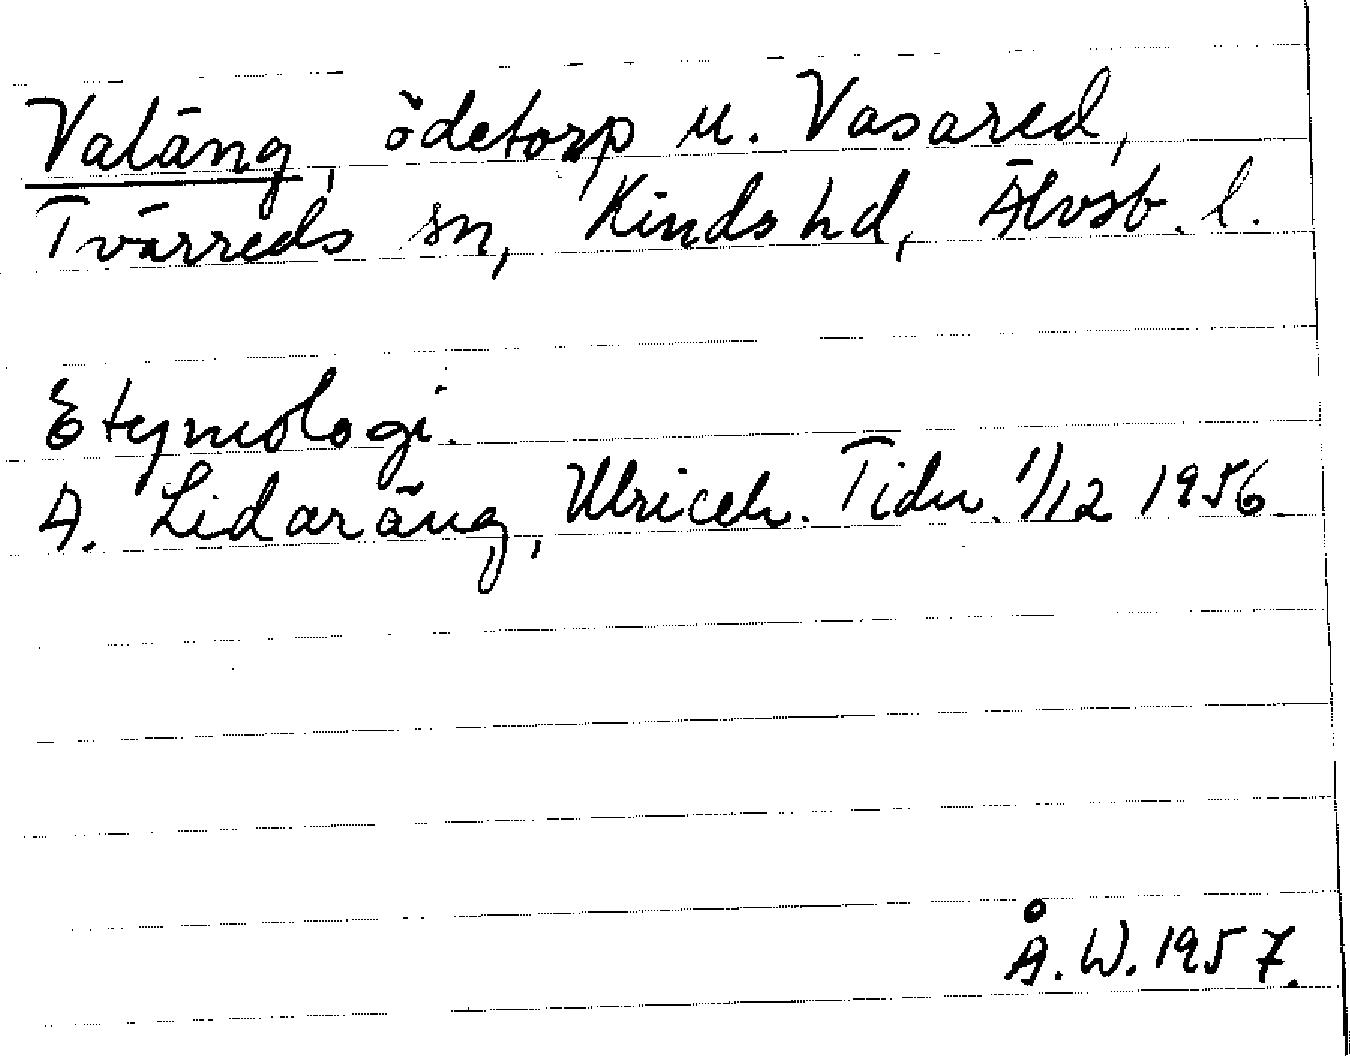 Valäng, ödetorp u. Vasared,
Tvärreds sn, Kinds hd, Älvsb. l.
Etymologi.
A. Lidaräng, Ulriceh. Tidn. 1/12 1956
Å. W. 1957.